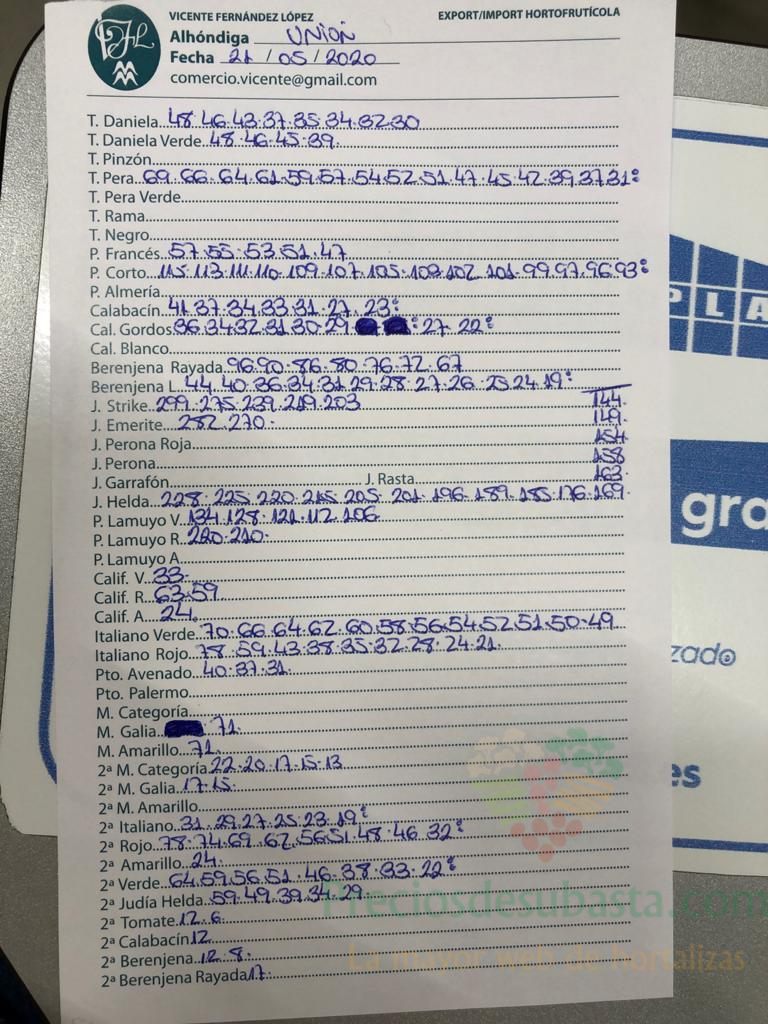 VICENTE FERNÁNDEZ LÓPEZ EXPORT/IMPORT HORTOFRUTÍCOLA
Alhóndiga UNION
Fecha 21/05/2020
comercio.vicente@gmail.com
T. Daniela 48.46.43.37.35.34.32.30
T. Daniela Verde 48.46.45.39.
T. Pinzón
T. Pera 69.66.64.61.59.57.54.52.51.47.45.42.39.37.31:
T. Pera Verde
T. Rama
T. Negro
P. Francés 57.55.53.51.47
P. Corto 115.113.111.110.109.107.105.103.102.101.99.97.96.93:
P. Almería
Calabacín 41.37.34.33.31.27.23:
Cal. Gordos 36.34.32.31.30.29 : 27.22:
Cal. Blanco
Berenjena Rayada 96.90.86.80.76.72.67
Berenjena L. 44.40.36.34.31.29.28.27.26.25.24.19:
J. Strike 299.275.239.219.203 144.
J. Emerite 282.270. 149.
J. Perona Roja 154
J. Perona 158
J. Garrafón J. Rasta 163.
J. Helda 228.225.220.215.205.201.196.189.185.176.169.
P. Lamuyo V. 134.128.121.112.106
P. Lamuyo R. 220.210.
P. Lamuyo A.
Calif. V. 33.
Calif. R. 63.59
Calif. A. 24.
Italiano Verde 70.66.64.62.60.58.56.54.52.51.50.49
Italiano Rojo 78.59.43.38.35.32.28.24.21.
Pto. Avenado 40.37.31.
Pto. Palermo
M. Categoría
M. Galia 71.
M. Amarillo 71.
2ª M. Categoría 22.20.17.15.13
2ª M. Galia 17.15.
2ª M. Amarillo
2ª Italiano 31.29.27.25.23.19:
2ª Rojo 78.74.69.62.56.51.48.46.32:
2ª Amarillo 24.
2ª Verde 64.59.56.51.46.38.33.22:
2ª Judía Helda 59.49.39.34.29.
2ª Tomate 12.6.
2ª Calabacín 12
2ª Berenjena 12.8.
2ª Berenjena Rayada 17.
PLA
gra
zado
es
Preciosdesubasta.com
La mayor web de hortalizas